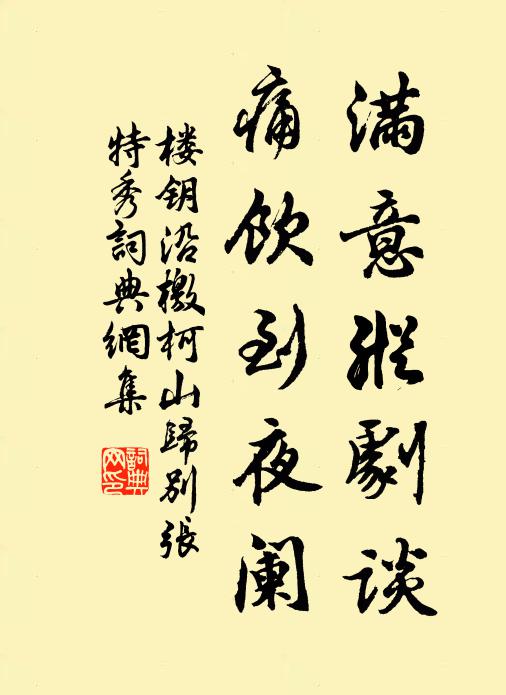 满意纵剧谈
痛饮到夜阑
楼钥沿檄柯山归别张
特秀词典网集
词典网印